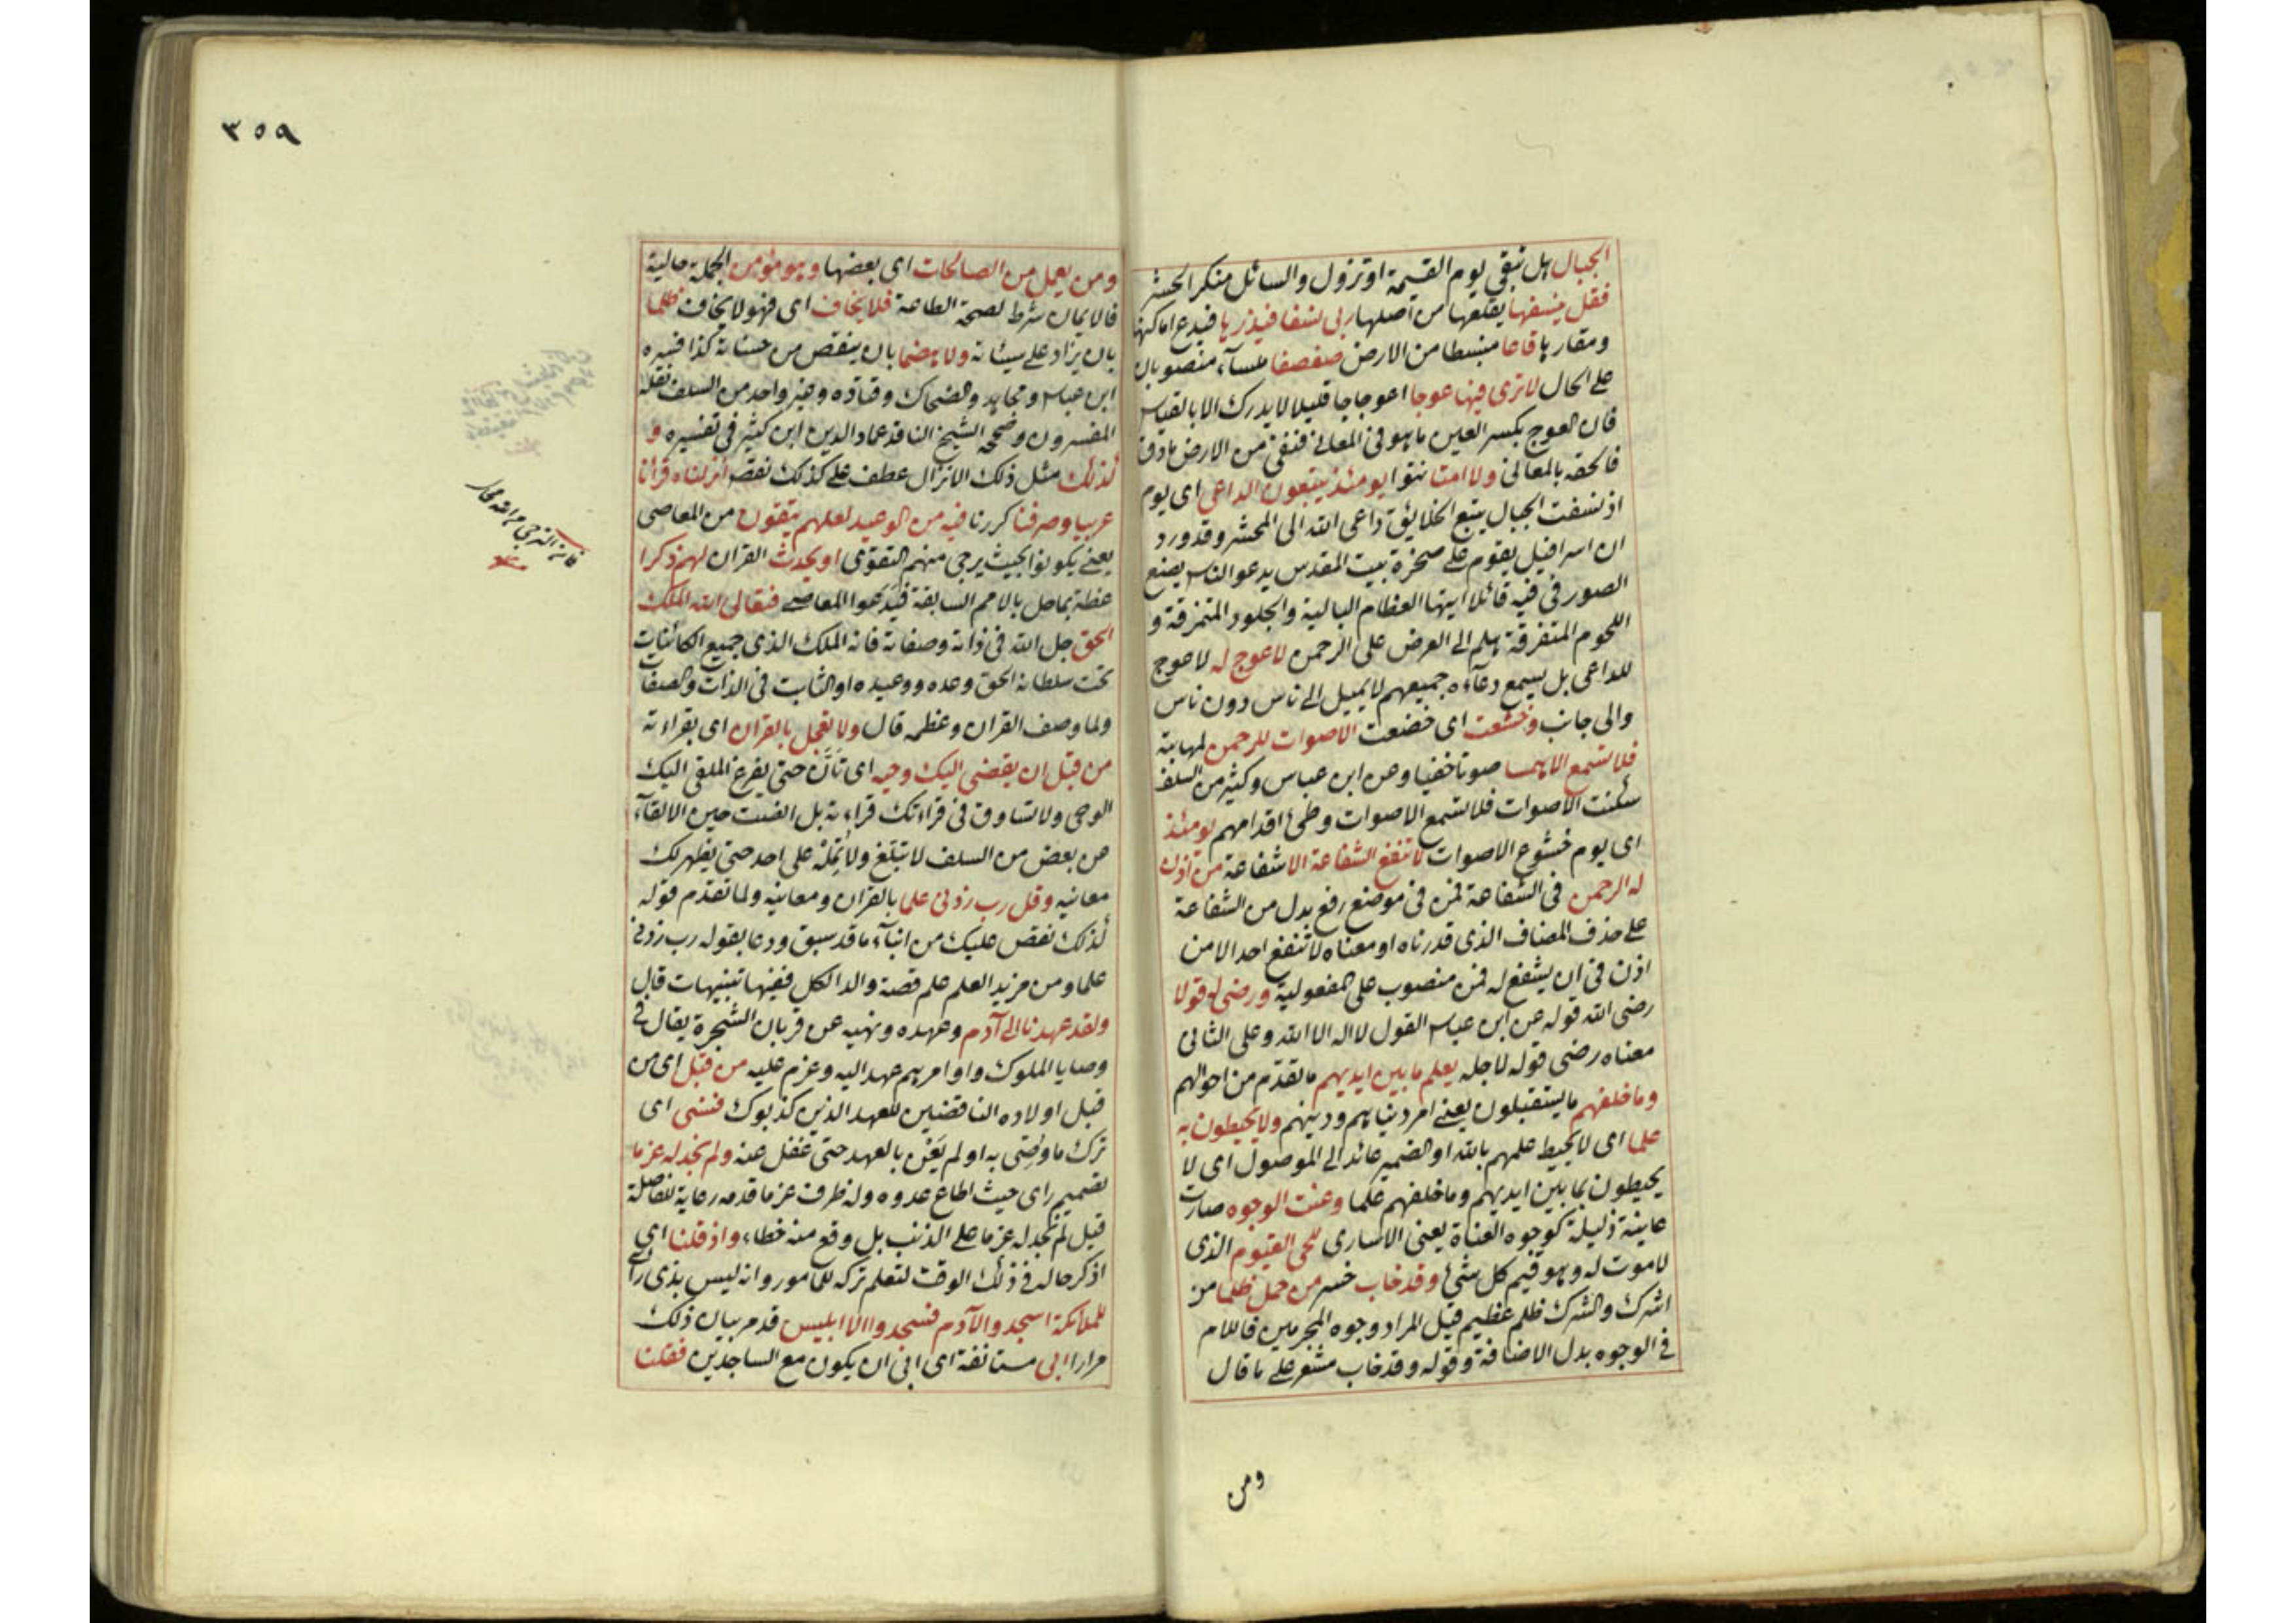 الجبال هل تبقي يوم القيمة او تزول والسائل منكر الحشر
فقل ينسفها يقلعها من اصلها ربي نسفا فيذريها فيدع اماكنها
ومقارها قاعا منبسطا من الارض صفصفا ملساء منصوبان
على الحال لا ترى فيها عوجا اعوجاجا قليلا لا يدرك الا بالقياس
فان العوج بكسر العين ما هو في المعاني فنفى من الارض ما دق
فالحقه بالمعاني ولا امتا نتوا يومئذ يتبعون الداعي اى يوم
اذ نسفت الجبال يتبع الخلايق داعى الله الى المحشر وقد ورد
ان اسرافيل يقوم على صخرة بيت المقدس يدعو الناس يضع
الصور في فيه قائلا ايتها العظام البالية والجلود المتمزقة و
اللحوم المتفرقة هلم الى العرض على الرحمن لا عوج له لا عوج
للداعى بل يسمع دعاءه جميعهم لا يميل الى ناس دون ناس
والى جانب وخشعت اى خضعت الاصوات للرحمن لمهابته
فلا تسمع الا همسا صوتا خفيا وعن ابن عباس وكثير من السلف
سكنت الاصوات فلا تسمع الاصوات وطئ اقدامهم يومئذ
اى يوم خشوع الاصوات لا تنفع الشفاعة الا شفاعة من اذن
له الرحمن في الشفاعة فمن في موضع رفع بدل من الشفاعة
على حذف المضاف الذى قدرناه او معناه لا تنفع احد الا من
اذن في ان يشفع له فمن منصوب على المفعولية ورضى له قولا
رضى الله قوله عن ابن عباس القول لا اله الا الله وعلى الثاني
معناه رضى قوله لاجله يعلم ما بين ايديهم ما تقدم من احوالهم
وما خلفهم ما يستقبلون يعنى امر دنياهم ودينهم ولا يحيطون به
علما اى لا يحيط علمهم بالله او الضمير عائد الى الموصول اى لا
يحيطون بما بين ايديهم وما خلفهم علما وعنت الوجوه صارت
عانية ذليلة كوجوه العناة يعنى الاسارى للحى القيوم الذى
لا موت له وهو قيم كل شئ وقد خاب خسر من حمل ظلما من
اشرك والشرك ظلم عظيم قيل المراد وجوه المجرمين فاللام
في الوجوه بدل الاضافة وقوله وقد خاب مشعر على ما قال
ومن
٣٥٩
ومن يعمل من الصالحات اى بعضها وهو مؤمن الجملة حالية
فالايمان شرط لصحة الطاعة فلا يخاف اى فهو لا يخاف ظلما
بان يزاد على سيئاته ولا هضما بان ينقص من حسناته كذا فسره
ابن عباس ومجاهد والضحاك وقتاده وغير واحد من السلف نقله
المفسرون وصححه الشيخ الناقد عماد الدين ابن كثير في تفسيره و
كذلك مثل ذلك الانزال عطف على كذلك نقص انزلناه قرأنا
عربيا وصرفنا كررنا فيه من الوعيد لعلهم يتقون من المعاصى
يعنى يكونوا بحيث يرجى منهم التقوى او يحدث القران لهم ذكرا
عظة بما حل بالامم السابقة فيدعوا المعاصى فتعالى الله الملك
الحق جل الله في ذاته وصفاته فانه الملك الذى جميع الكائنات
تحت سلطانه الحق وعده ووعيده او الثابت في الذات والصفات
ولما وصف القران وعظمه قال ولا تعجل بالقران اى بقراءته
من قبل ان يقضى اليك وحيه اى تان حتى يفرغ الملقى اليك
الوحى ولا تساوق في قراءتك قراءته بل انصت حين الالقاء
عن بعض من السلف لا تبلغ ولا تمله على احد حتى يظهر لك
معانيه وقل رب زدنى علما بالقران ومعانيه ولما تقدم قوله
كذلك نقص عليك من انباء ما قد سبق ودعا بقوله رب زدنى
علما ومن مزيد العلم علم قصة والد الكل ففيها تنبيهات قال
ولقد عهدنا الى آدم وعهده ونهيه عن قربان الشجرة يقال في
وصايا الملوك واوامرهم عهد اليه وعزم عليه من قبل اى من
قبل اولاده الناقضين للعهد الذين كذبوك فنسى اى
ترك ما وصى به او لم يعن بالعهد حتى غفل عنه ولم نجد له عزما
تصميم راى حيث اطاع عدوه وله ظرف عزما قدمه رعاية للفاصلة
قيل لم نجد له عزما على الذنب بل وقع منه خطاء واذ قلنا اى
اذكر حاله في ذلك الوقت لتعلم تركه للمامور وانه ليس بذى راى
للملائكة اسجدوا لآدم فسجدوا الا ابليس قد مر بيان ذلك
مرارا ابى مستانفة اى ابى ان يكون مع الساجدين فقلنا